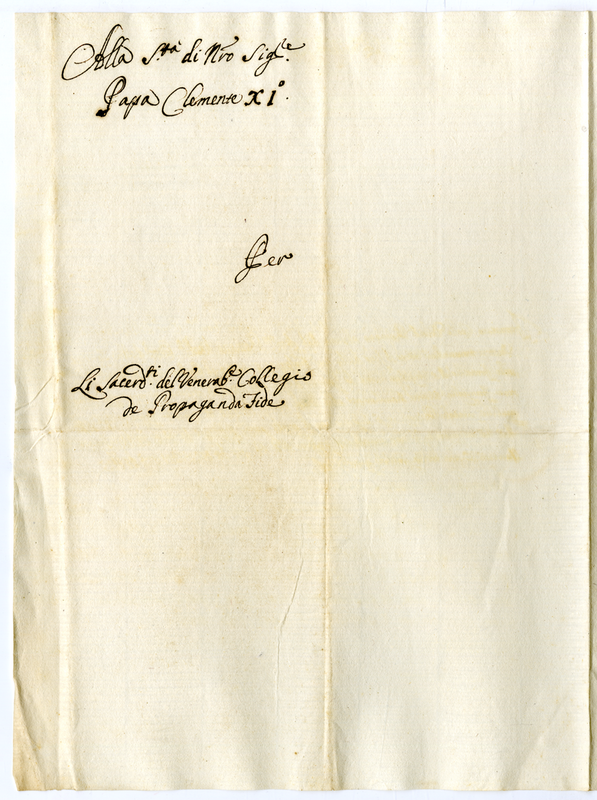 Alla S.tà di Nro Sig.re
Papa Clemente XI°.
Per
Li Sacerd.ti del Venerab.e Collegio
de Propaganda Fide